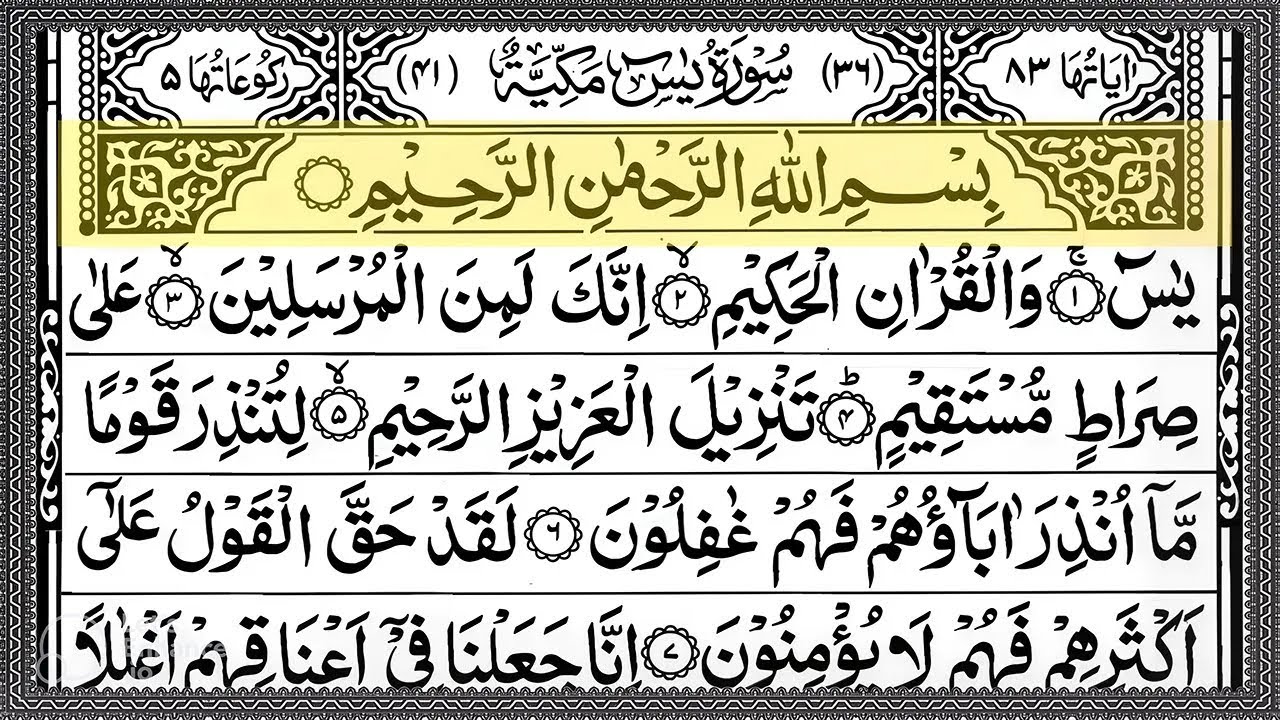 اٰيَاتُهَا ٨٣ (٣٦) سُوْرَةُ يٰسٓ مَكِّيَّةٌ (٤١) رُكُوْعَاتُهَا ٥
بِسْمِ اللّٰهِ الرَّحْمٰنِ الرَّحِيْمِ ۝
يٰسٓ ۝١ۚ وَالْقُرْاٰنِ الْحَكِيْمِ ۝٢ۙ اِنَّكَ لَمِنَ الْمُرْسَلِيْنَ ۝٣ۙ عَلٰى
صِرَاطٍ مُّسْتَقِيْمٍ ۝٤ؕ تَنْزِيْلَ الْعَزِيْزِ الرَّحِيْمِ ۝٥ۙ لِتُنْذِرَ قَوْمًا
مَّآ اُنْذِرَ اٰبَآؤُهُمْ فَهُمْ غٰفِلُوْنَ ۝٦ لَقَدْ حَقَّ الْقَوْلُ عَلٰٓى
اَكْثَرِهِمْ فَهُمْ لَا يُؤْمِنُوْنَ ۝٧ اِنَّا جَعَلْنَا فِيْٓ اَعْنَاقِهِمْ اَغْلٰلًا